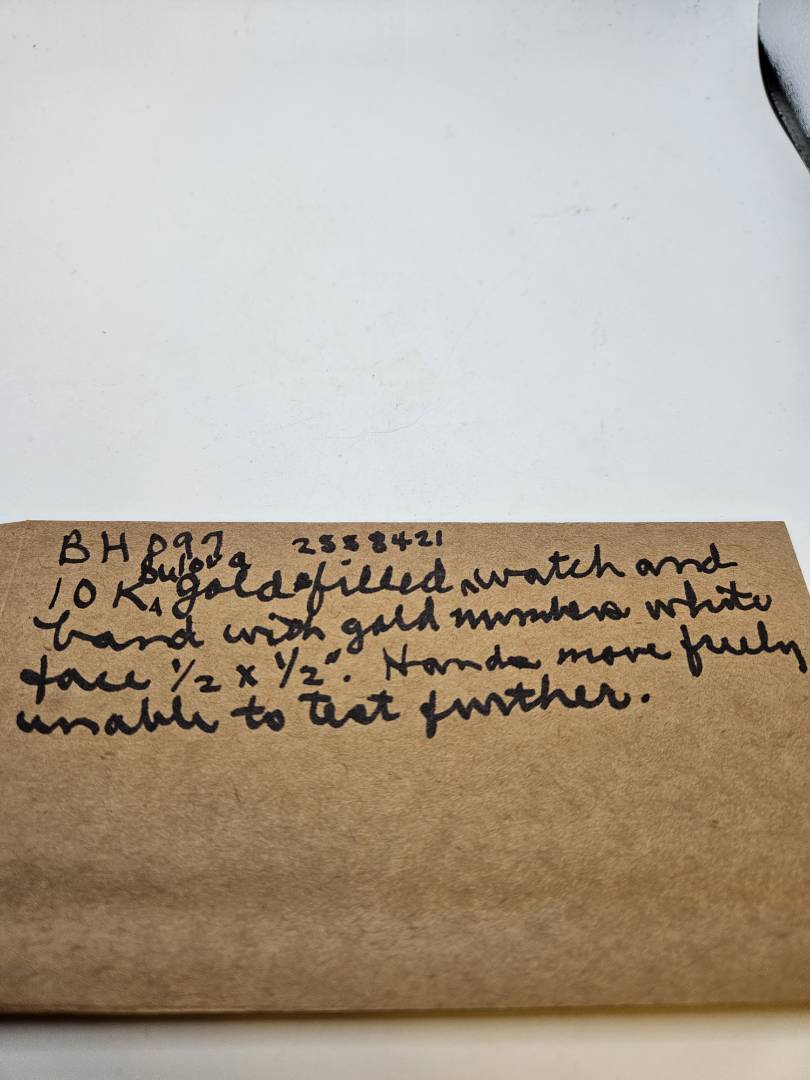 BH 097 2558421
Bulova
10 K gold filled, watch and
band with gold numbers white
face 1/2 x 1/2". Hands move freely
unable to test further.